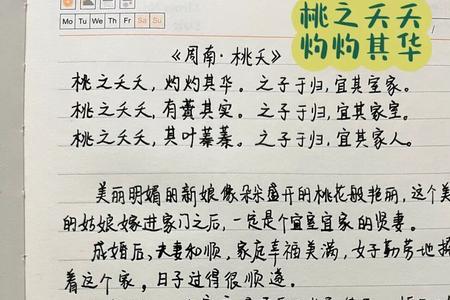 Mo Tu We Th Fr Sa Su
桃之夭夭
灼灼其华
《周南·桃夭》
桃之夭夭，灼灼其华。之子于归，宜其室家。
桃之夭夭，有蕡其实。之子于归，宜其家室。
桃之夭夭，其叶蓁蓁。之子于归，宜其家人。
美丽明媚的新娘像朵朵盛开的桃花般艳丽，这个美
的姑娘嫁进家门之后，一定是个宜室宜家的贤妻。
成婚后，夫妻和顺，家庭幸福美满，女子勤劳地操
着这个家，日子过得很顺遂。